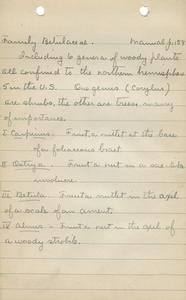 Family Betulaceae. Manual p. 158
Including 6 genera of woody plants
all confined to the northern hemisphere
5 in the U.S. One genus (Corylus)
are shrubs, the other are trees many
of importance.
I Carpinus - Fruit a nutlet at the base
of a foliaceous bract
II Ostrya - Fruit a nut in a sac-like
involucre.
III Betula - Fruit a nutlet in the axil
of a scale of an ament.
IV Alnus - Fruit a nut in the axil of
a woody strobile.